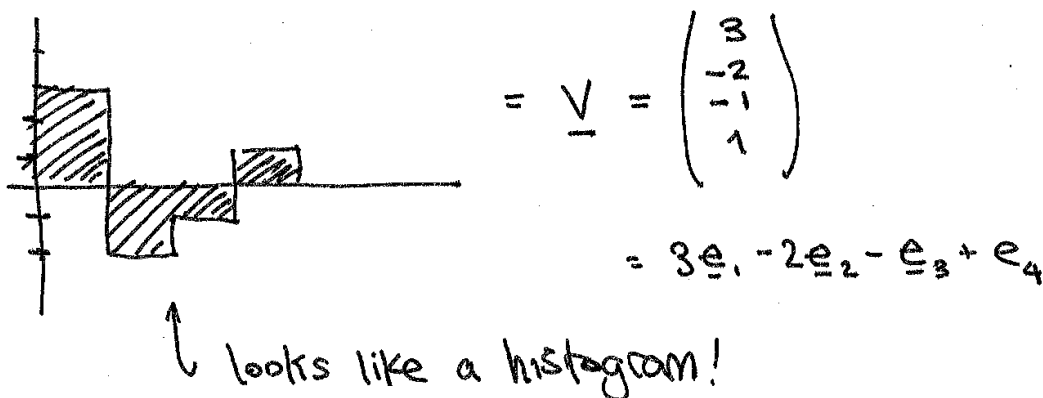 = V = ( 3
-2
-1
1 )
= 3e₁ - 2e₂ - e₃ + e₄
looks like a histogram!